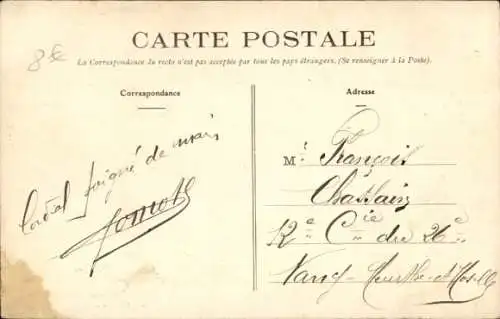 8€
CARTE POSTALE
La Correspondance du recto n'est pas acceptée par tous les pays étrangers. (Se renseigner à la Poste).
Correspondance
Adresse
poigné de main
Mʳ François
Chatlain
12e Cie du 26e
Nancy Meurthe-et-Moselle